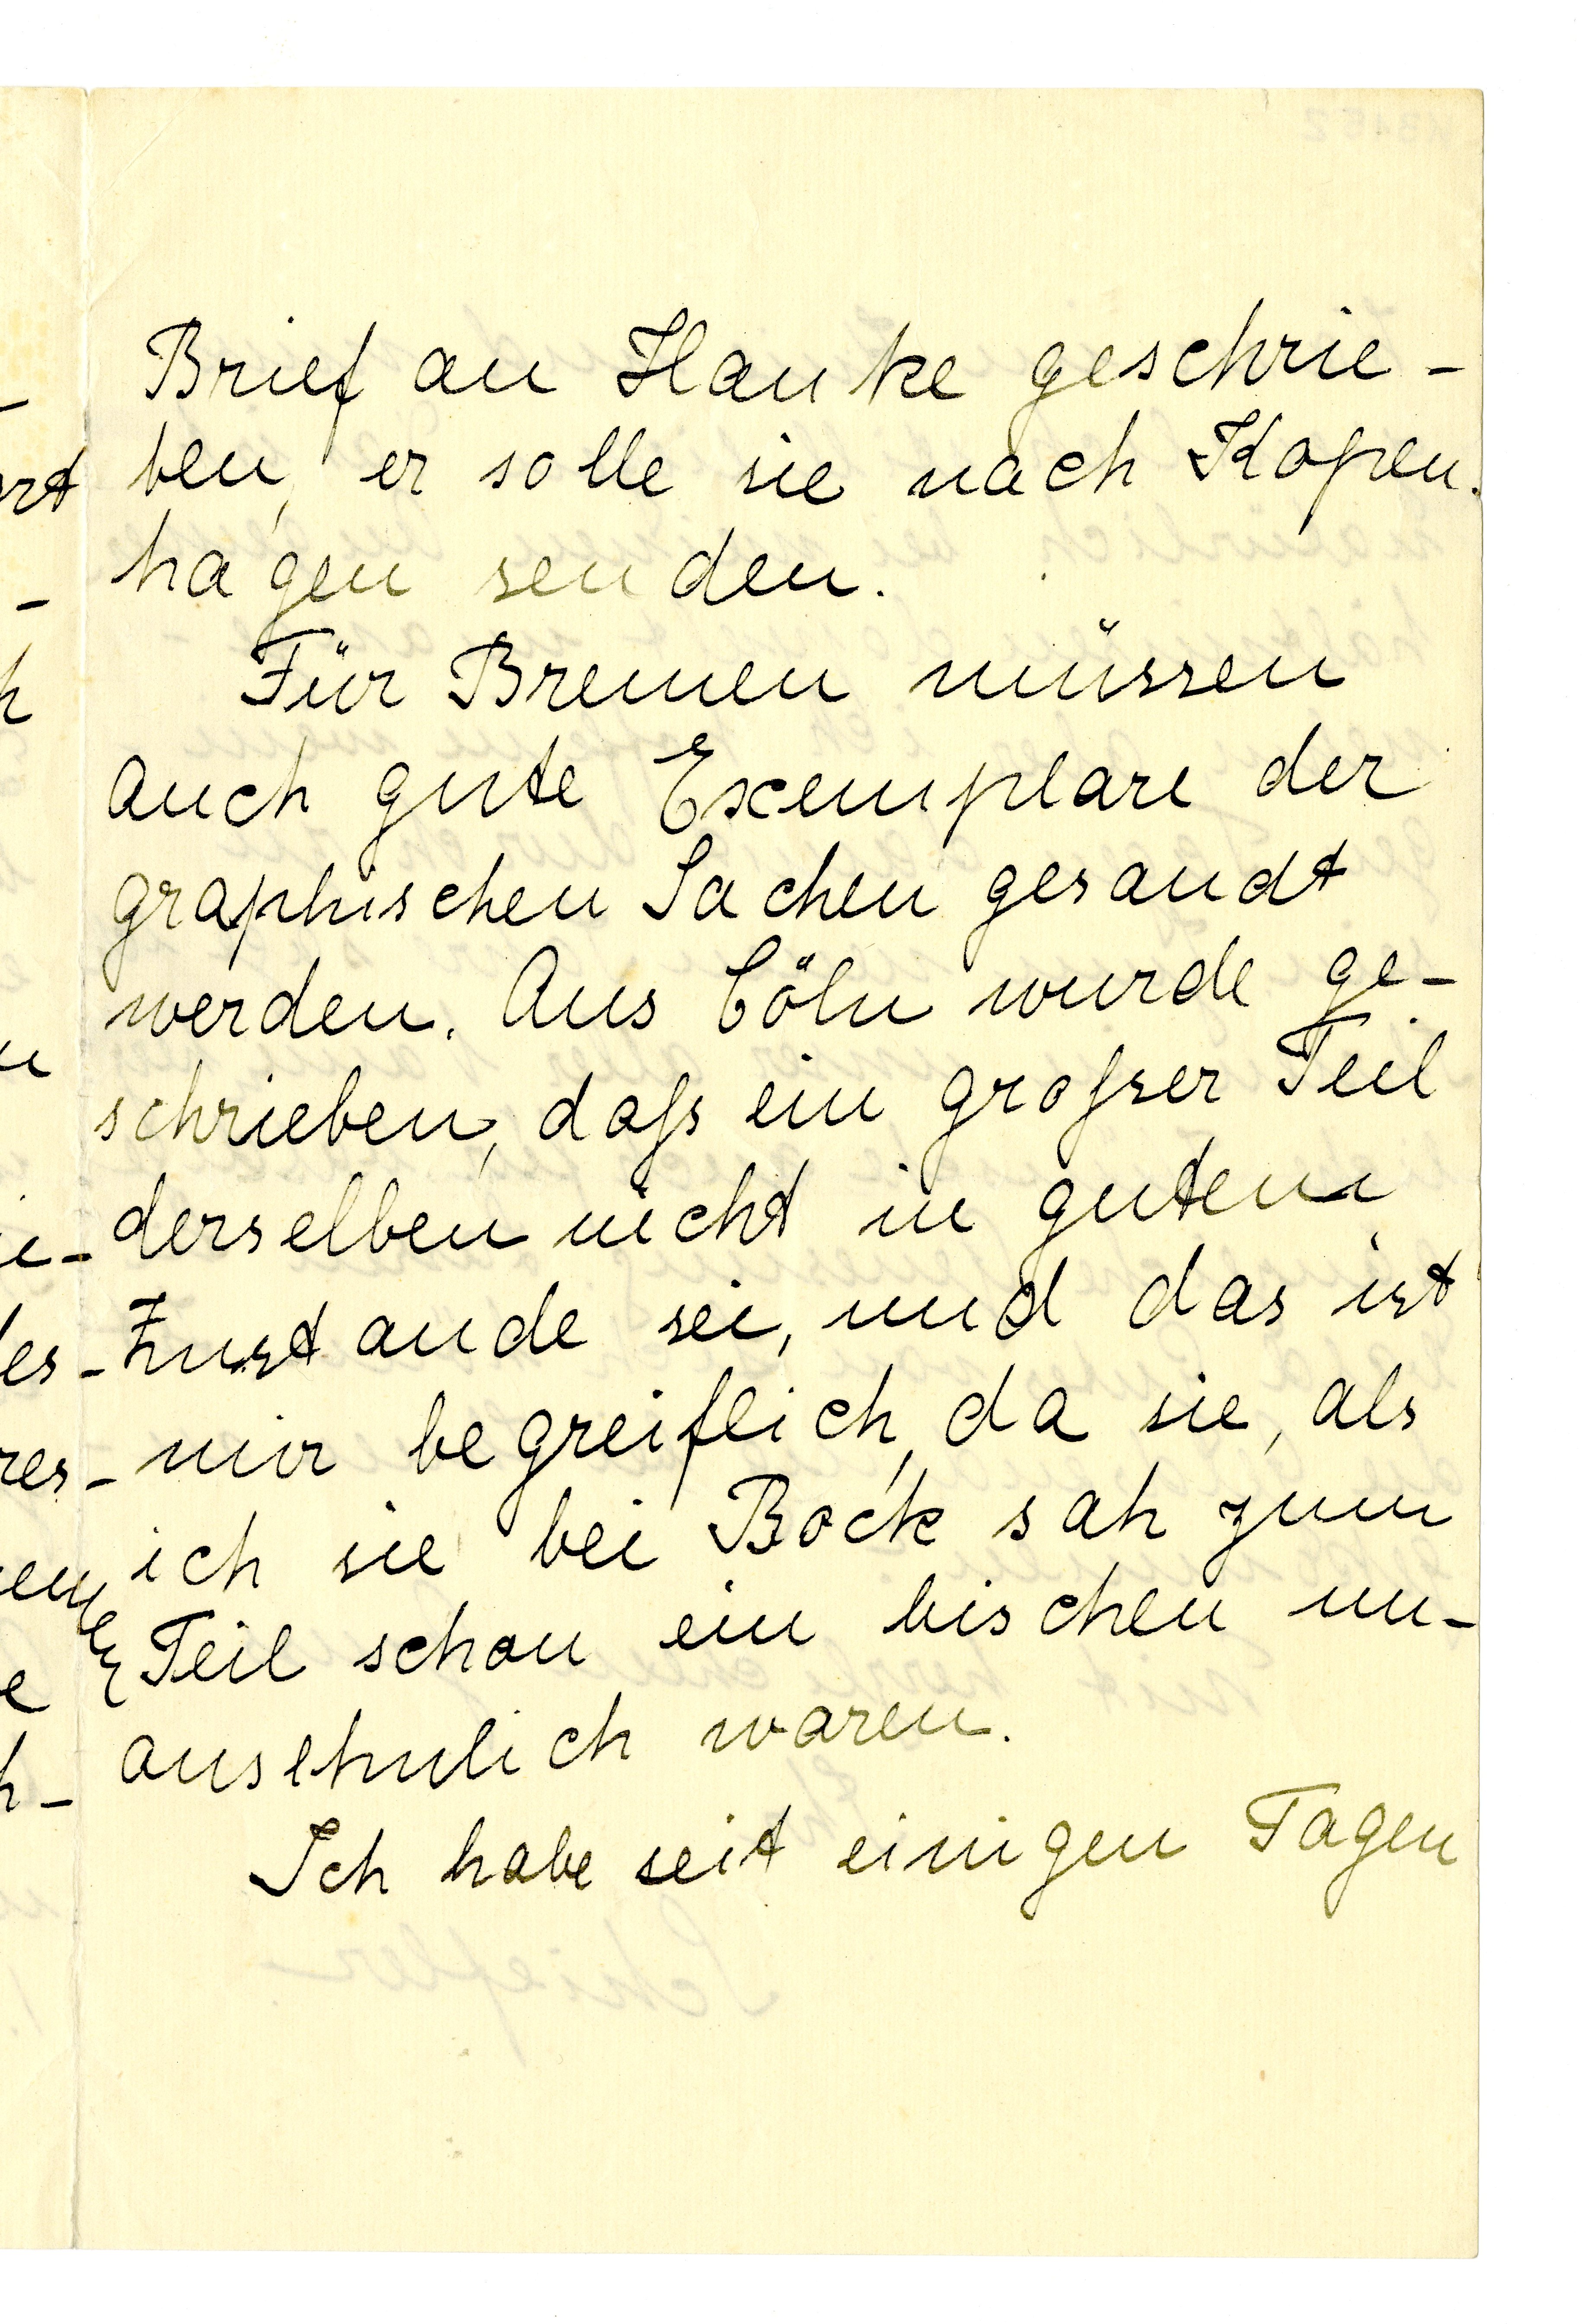 Brief an Hanke geschrie-
ben, er solle sie nach Kopen-
hagen senden.
Für Bremen müssen
auch gute Exemplare der
graphischen Sachen gesandt
werden. Aus Cöln wurde ge-
schrieben, daß ein großer Teil
derselben nicht in gutem
Zustande sei, und das ist
mir begreiflich, da sie, als
ich sie bei Bock sah zum
Teil schon ein bischen un-
ansehnlich waren.
Ich habe seit einigen Tagen